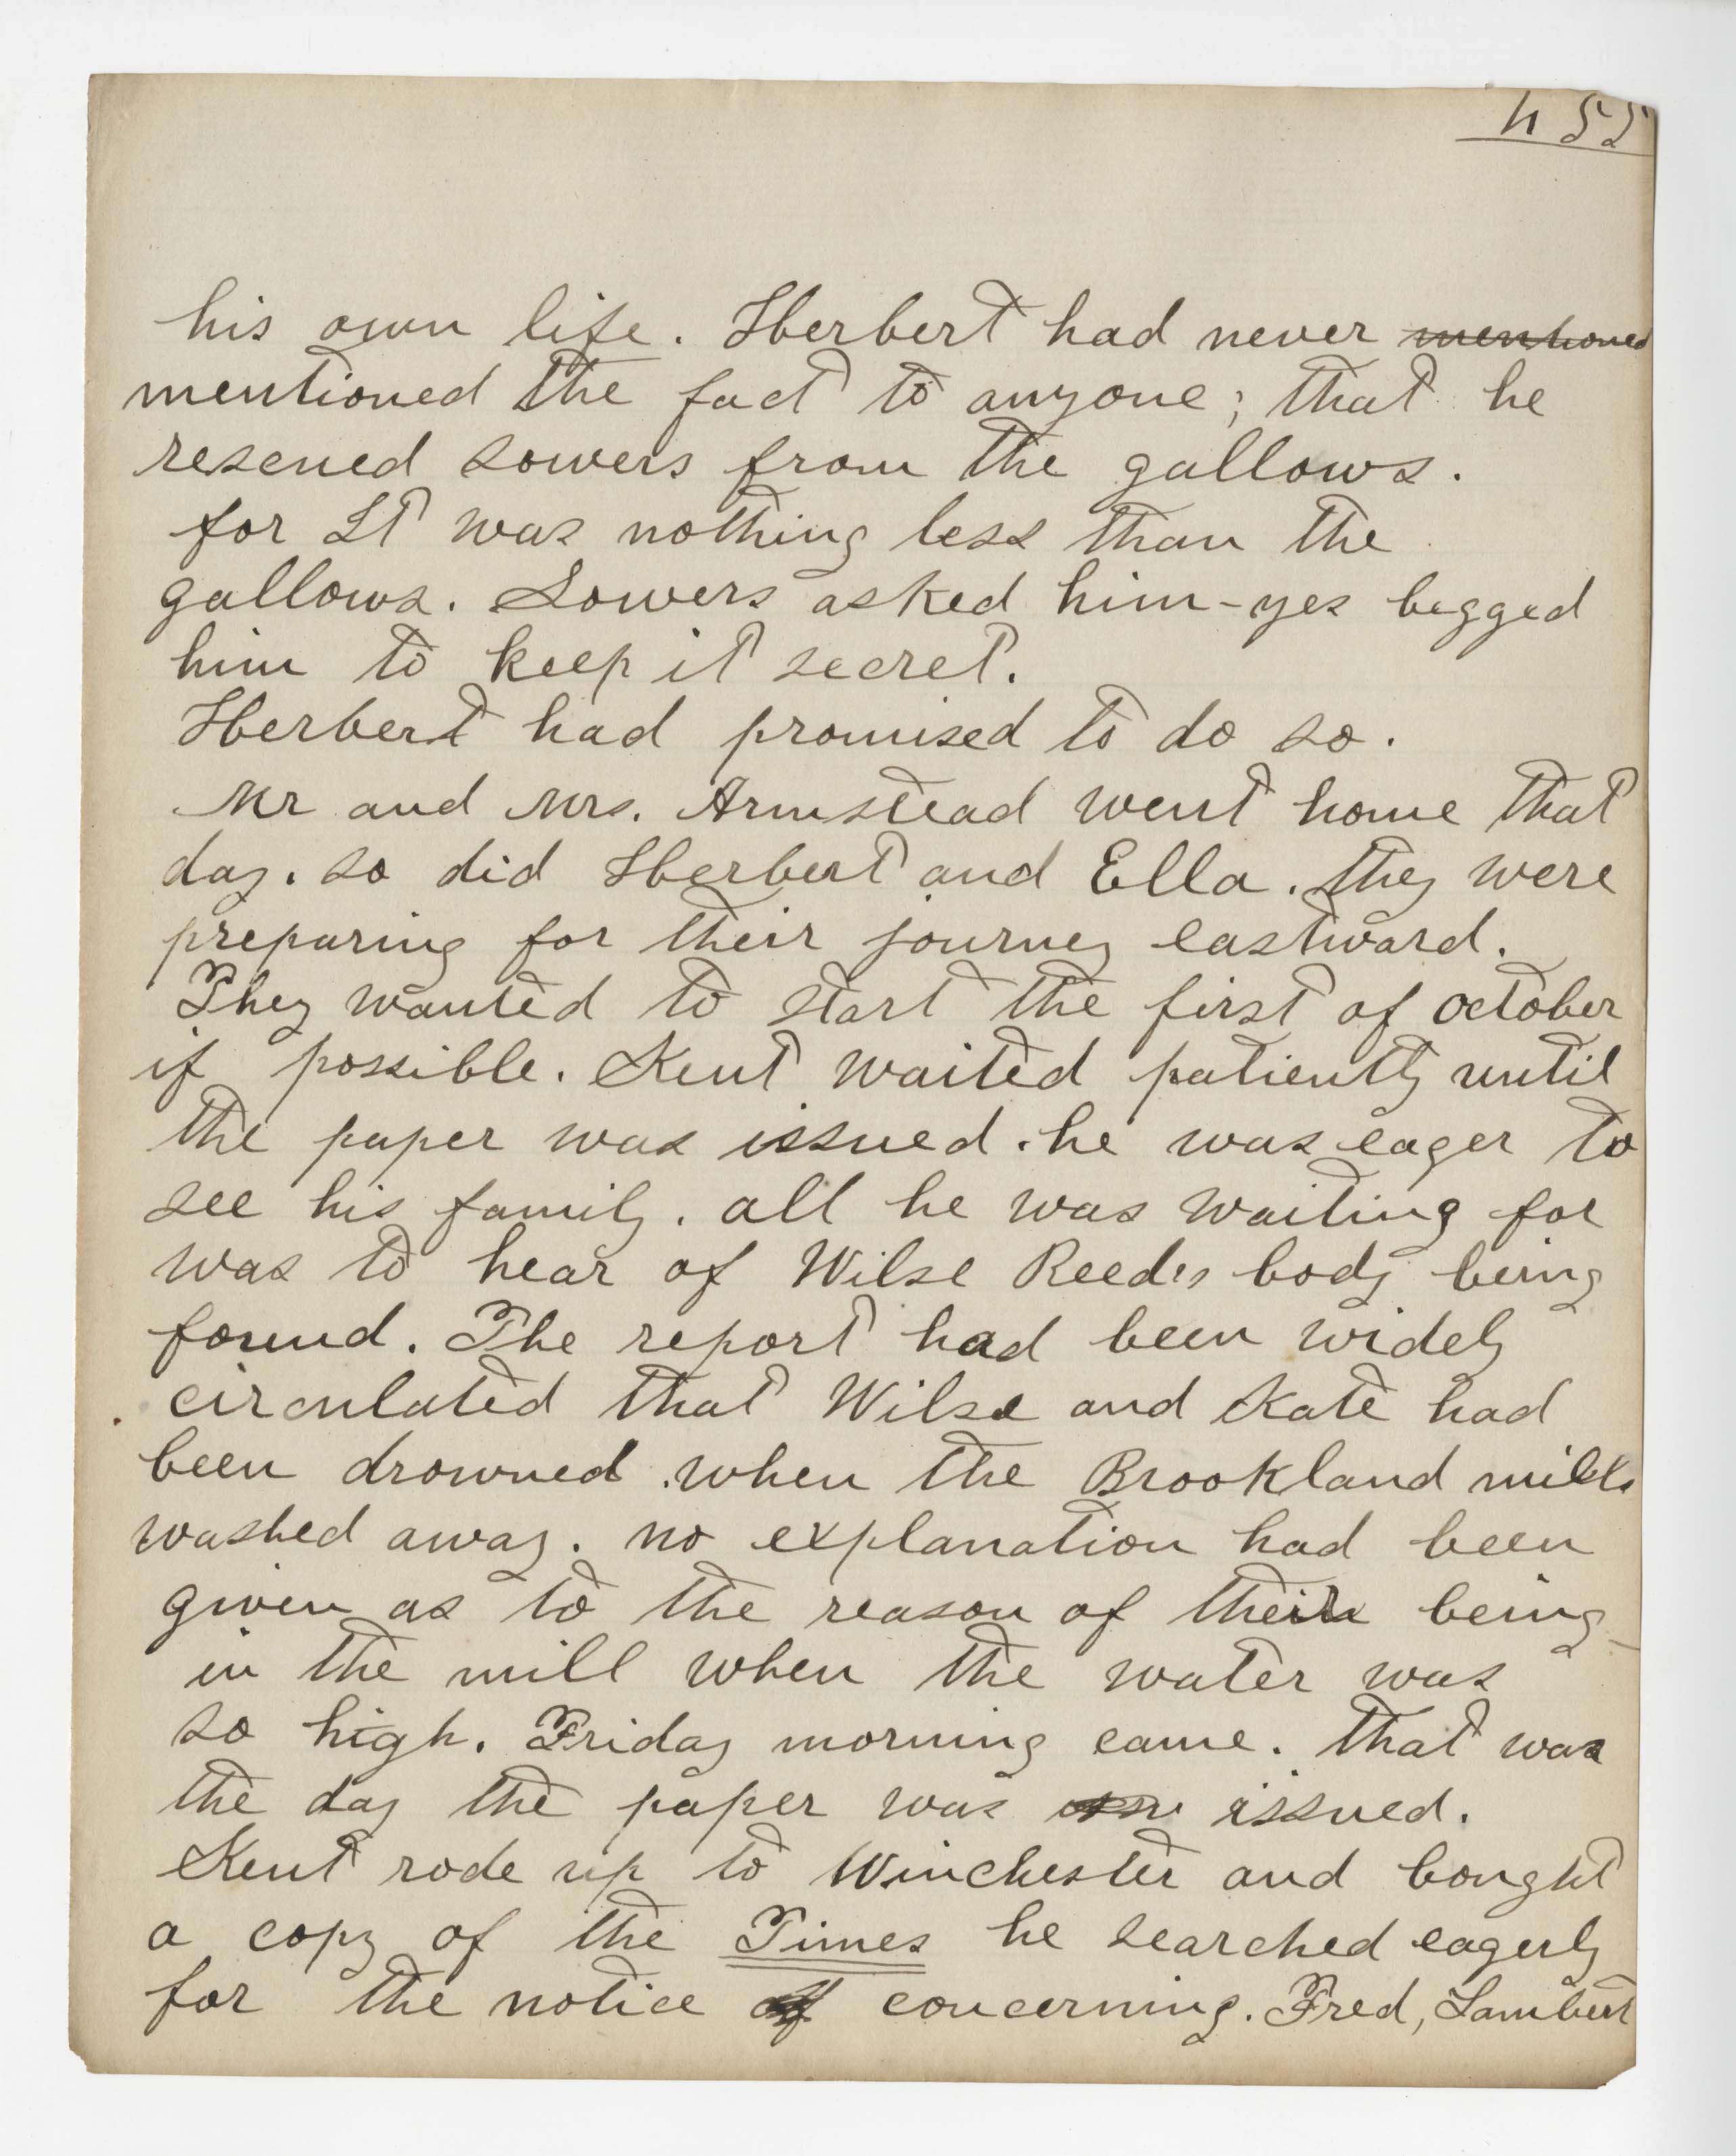 455
his own life. Herbert had never mentioned
mentioned the fact to anyone; that he
rescued sowers from the gallows.
for It was nothing less than the
gallows. Sowers asked him-yes begged
him to keep it secret.
Herbert had promised to do so.
Mr and Mrs. Armstead went home that
day. so did Herbert and Ella. they were
preparing for their journey eastward.
They wanted to start the first of october
if possible. Kent waited patiently until
the paper was issued. he was eager to
see his family. all he was waiting for
was to hear of Wilse Reed's body being
found. The report had been widely
circulated that Wilse and Kate had
been drowned when the Brookland mills
washed away. no explanation had been
given as to the reason of their being
in the mill when the water was
so high. Friday morning came. that was
the day the paper was issued.
Kent rode up to Winchester and bought
a copy of the Times he searched eagerly
for the notice of concerning. Fred, Lambert